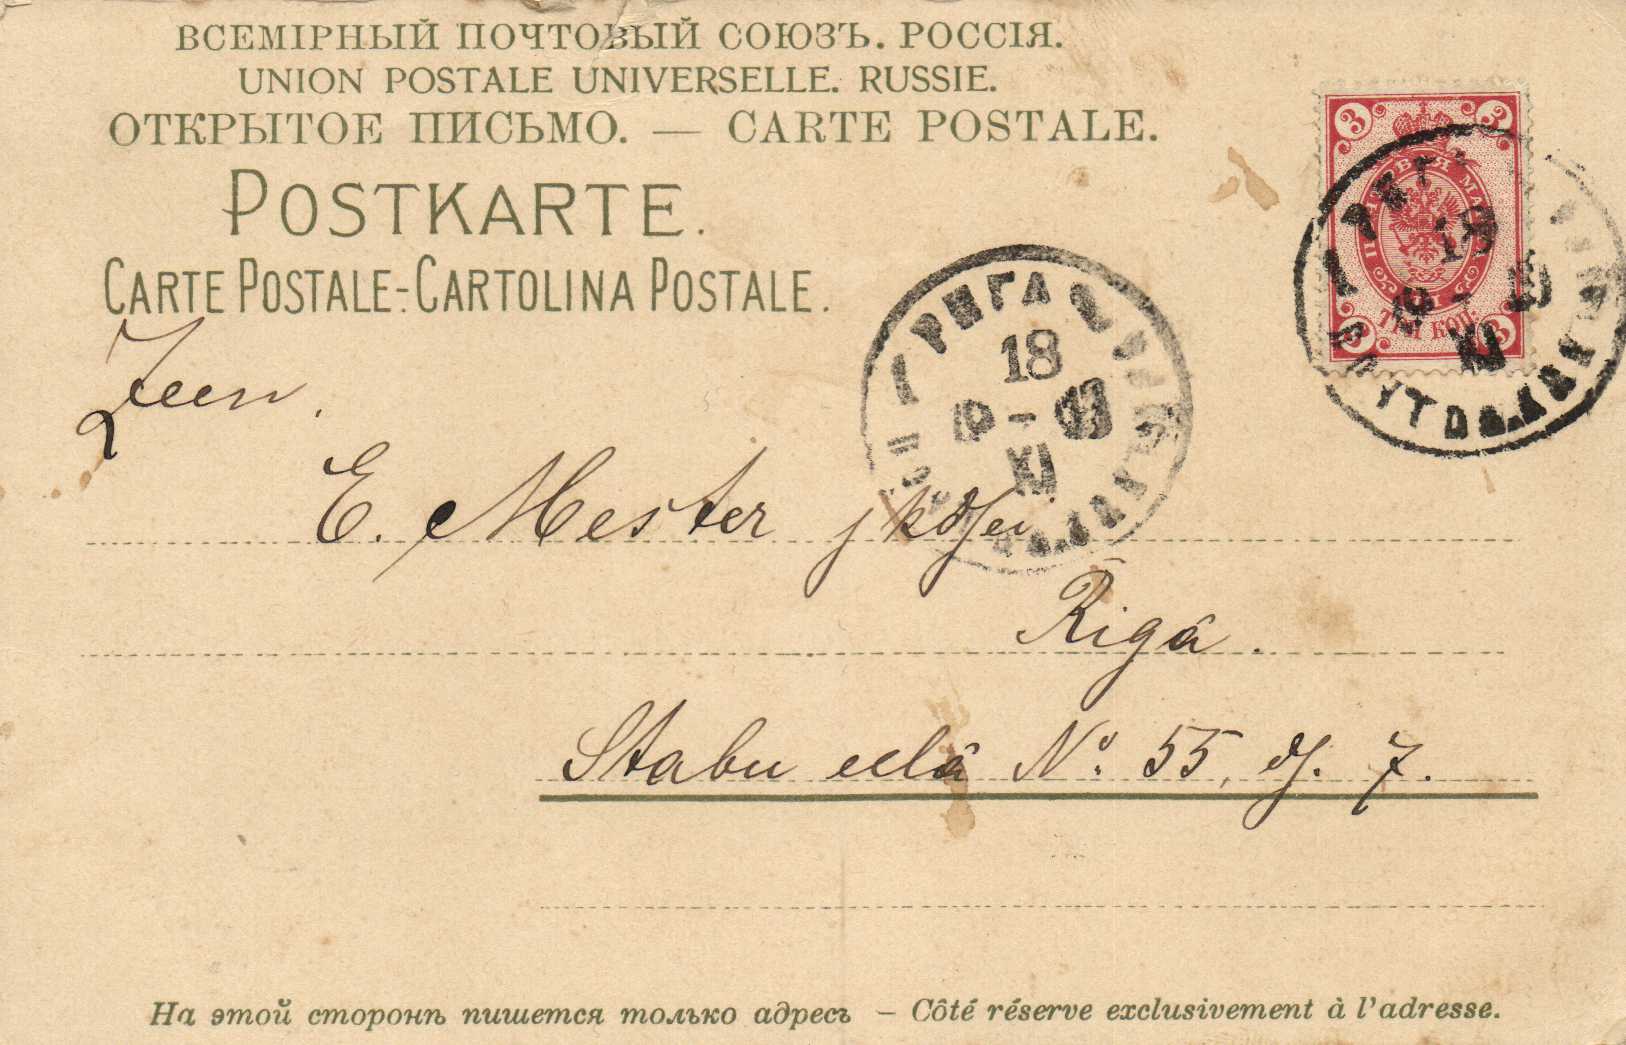 ВСЕМІРНЫЙ ПОЧТОВЫЙ СОЮЗЪ. РОССІЯ.
UNION POSTALE UNIVERSELLE. RUSSIE.
ОТКРЫТОЕ ПИСЬМО. — CARTE POSTALE.
POSTKARTE.
CARTE POSTALE-CARTOLINA POSTALE.
3 3
3 3
ТРИ КОП.
РИГА
18
XI
18
XI
E. Mester
Rigâ.
Stabu eelâ № 55, dz. 7.
На этой сторонѣ пишется только адресъ — Côté réserve exclusivement à l'adresse.